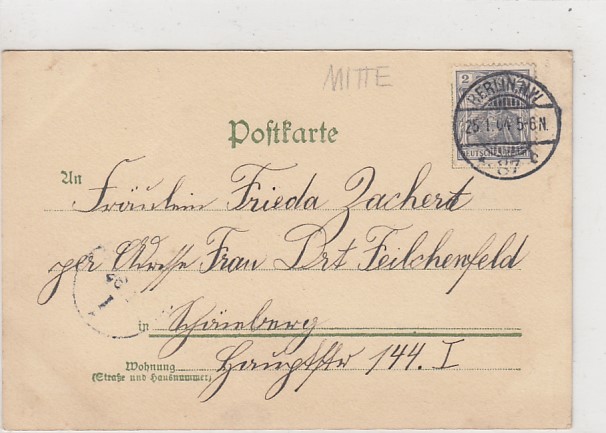 MITTE
2
BERLIN.N.W.
25.1.04.5-6N.
87
DEUTSCHES REICH
Postkarte
An
Fräulein Frieda Zachert
per Adresse Frau Drt Feilchenfeld
in Schöneberg
Wohnung Hauptstr 144. I
(Straße und Hausnummer)